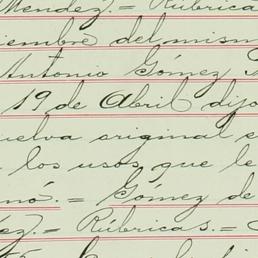 Mendez.= Rúbrica
iembre del mism
Antonio Gómez
19 de Abril dijo
uelva original e
los usos que le
nó.= Gómez de
ez.= Rúbricas.=